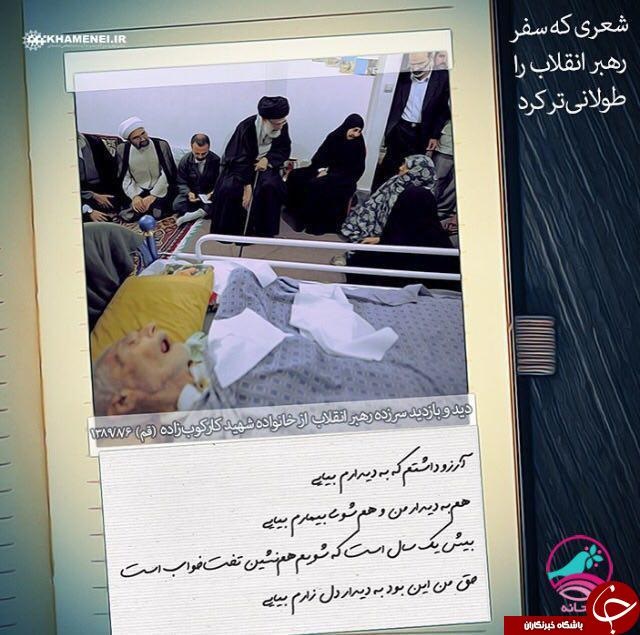 KHAMENEI.IR
شعری که سفر
رهبر انقلاب را
طولانی‌تر کرد
دید و بازدید سرزده رهبر انقلاب از خانواده شهید کارکوب‌زاده (قم) ۱۳۸۹/۸/۶
آرزو داشتم که به دیدارم بیایی
هم به دیدار من و هم شوی بیمارم بیایی
بیش یک سال است که شویم هم‌نشین تخت خواب است
حق من این بود به دیدار دل زارم بیایی
باشگاه خبرنگاران